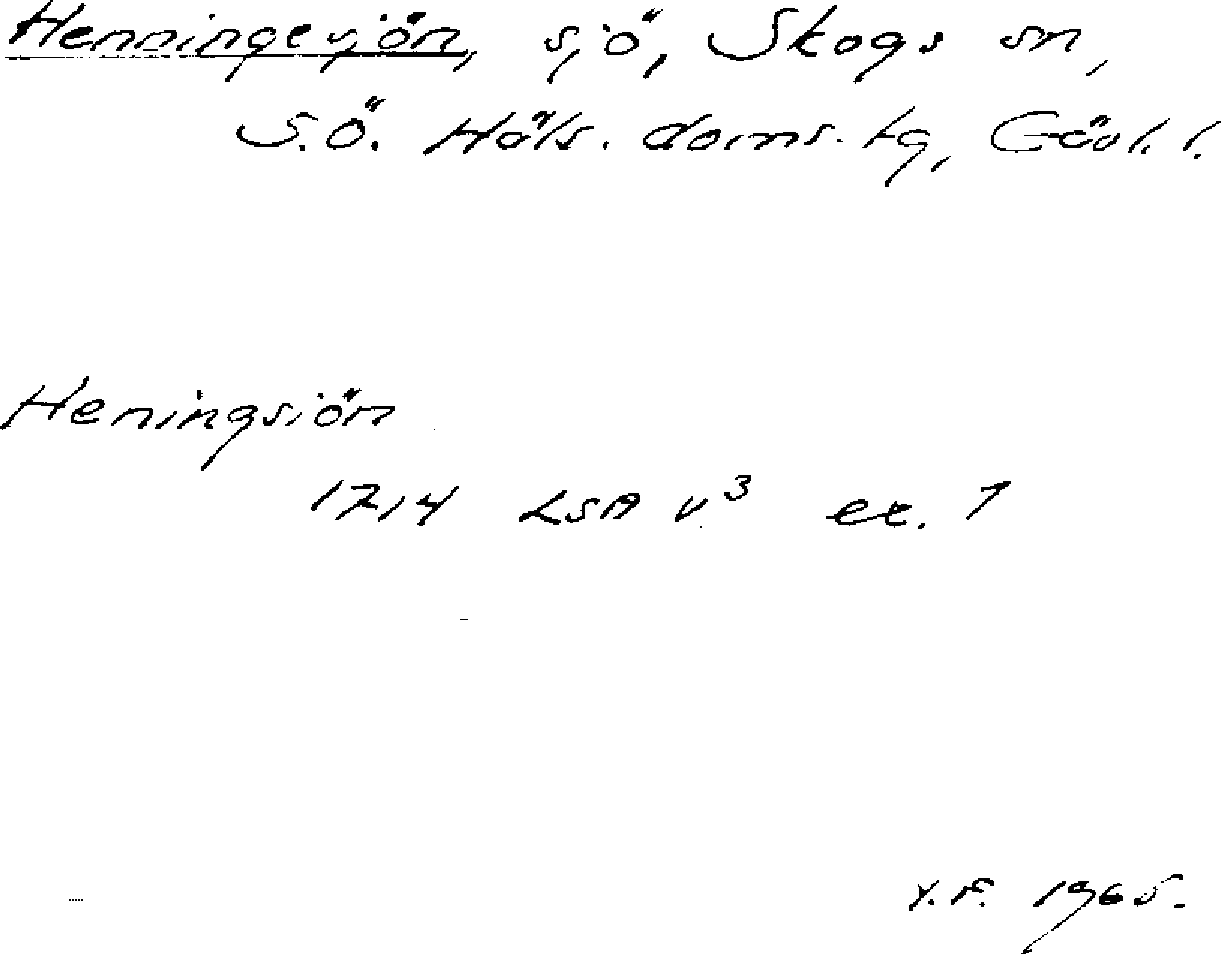 Henningesjön, sjö, Skogs sn,
S.Ö. Häls. doms. tg, Gävl. l.
Heningsiön
1714 LSA V.³ ex. 1
Y.F. 1965.